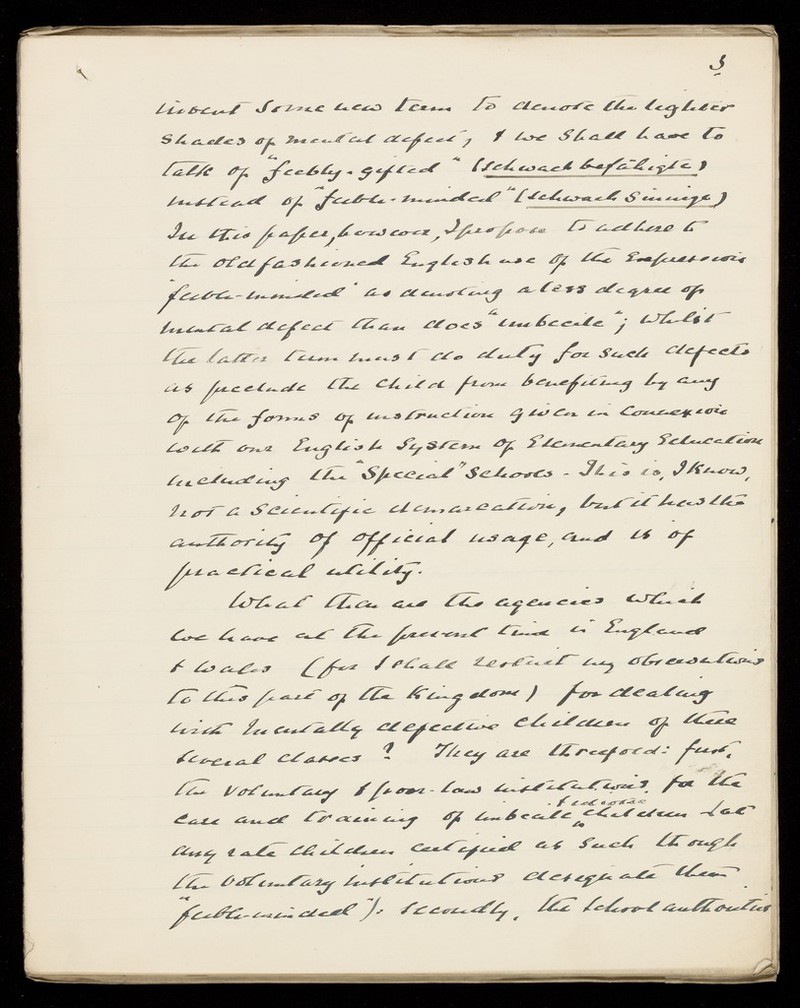 3
invent some new term to denote the lighter
shades of mental defect, & we shall have to
talk of "feebly-gifted" (schwachbefähigte)
instead of "feeble-minded" (schwachsinnige)
In this paper, however, I propose to adhere to
the old fashioned English use of the expression
"feeble-minded" as denoting a less degree of
mental defect than does "imbecile"; whilst
the latter term must do duty for such defects
as preclude the child from benefiting by any
of the forms of instruction given in connexion
with our English System of Elementary Education
including the "Special" Schools - This is, I know,
not a scientific demarcation, but it has the
authority of official usage, and is of
practical utility.
What then are the agencies which
we have at the present time in England
& Wales (for I shall restrict my observations
to this part of the Kingdom) for dealing
with mentally defective children of these
several classes? They are threefold: first,
the voluntary & poor-law institutions, for the
& idiotic
care and training of imbecile children (at
any rate children certified as such though
the voluntary institutions designate them
"feeble-minded"): secondly, the school authorities